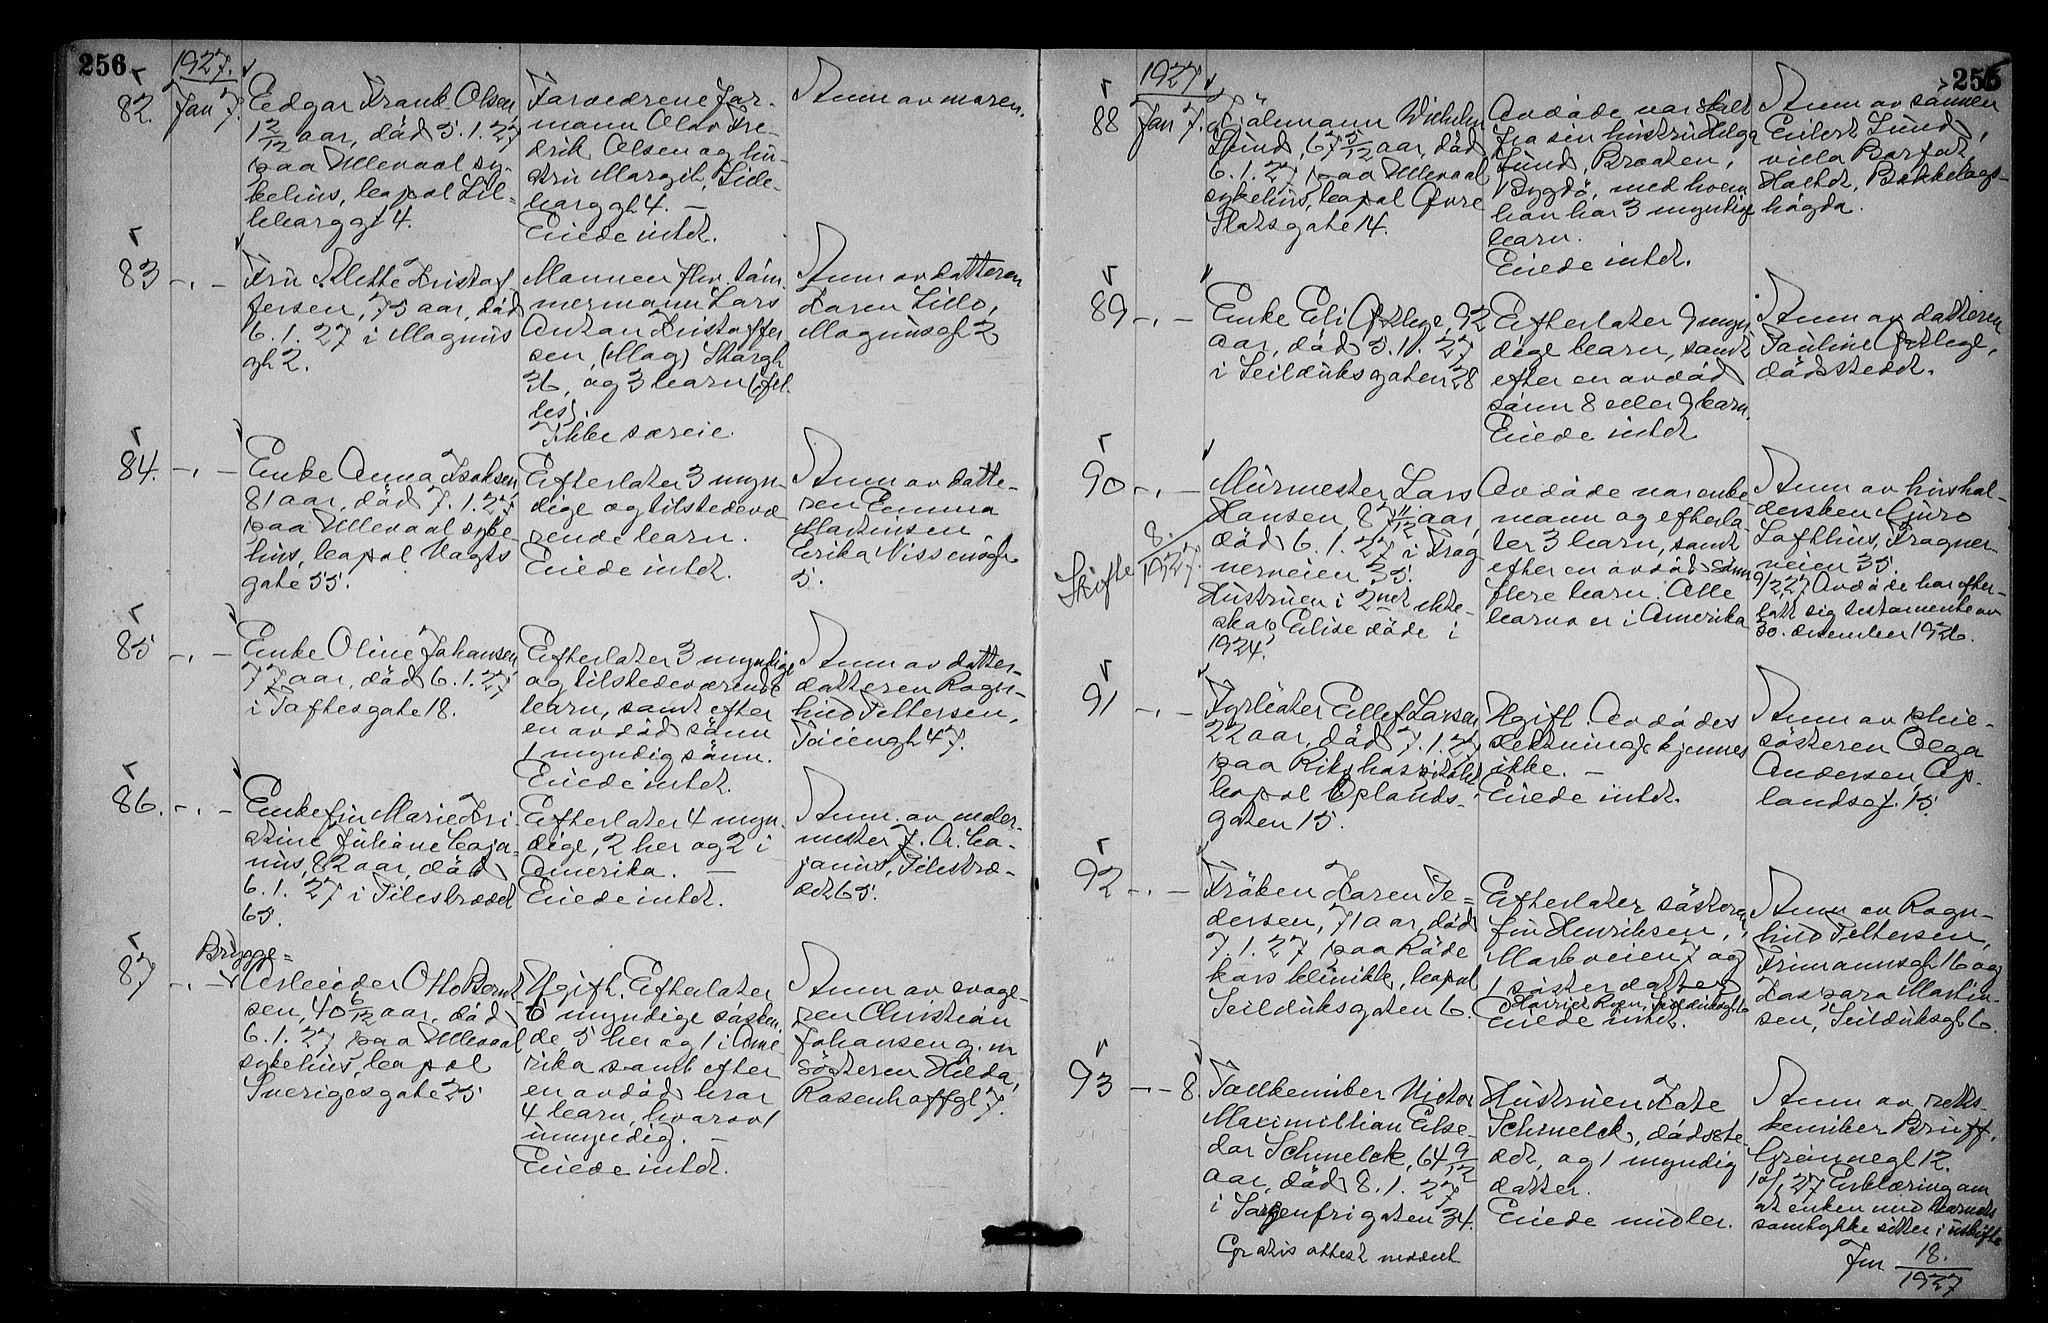 256
1927.
82. Jan 7.
Edgar Frank Olsen,
1 2/12 aar, død 5.1.27
paa Ullevaal sy-
kehus, bopæl Lil-
leborggt 4.
Forældrene For-
mann Olav Fre-
drik Olsen og hu-
stru Margit, Lille-
borggt 4. —
Eiede intet.
Anm av moren.
83 -"-
Fru Alette Kristof-
fersen, 75 aar, død
6.1.27 i Magnus
gt 2.
Mannen fhv. tøm-
mermann Lars
Anton Kristoffer
sen, (Mag) Skorgt
36, og 3 barn (fel-
les).
Ikke særeie.
Anm av datteren
Karen Lillo,
Magnusgt 2
84. -"-
Enke Anna Isaksen,
81 aar, død 7.1.27
paa Ullevaal syke
hus, bopæl Vogts
gate 55.
Efterlater 3 myn-
dige og tilstedevæ
rende barn.
Eiede intet.
Anm av datte-
ren Emma
Martinsen
Erika Nissensgt
5.
85 -"-
Enke Oline Johansen,
77 aar, død 6.1.27
i Toftesgate 18.
Efterlater 3 myndige
og tilstedeværende
barn, samt efter
en avdød sønn
1 myndig sønn.
Eiede intet.
Anm av datter-
datteren Ragn-
hild Pettersen,
Tøiengt 47.
86. -"-
Enkefru Marie Kri-
stine Juliane Caja-
nus, 82 aar, død
6.1.27 i Pilestrædet
65.
Efterlater 4 myn-
dige, 2 her og 2 i
Amerika. —
Eiede intet.
Anm. av maler-
mester J. A. Ca-
janus, Pilestræ-
det 65.
Brygge=
87 -"-
Arbeider Otto Bernt
sen, 40 6/12 aar, død
6.1.27 paa Ullevaal
sykehus, bopæl
Sverigesgate 25
Ugift. Efterlater
6 myndige søsken-
de, 5 her og 1 i Ame-
rika samt efter
en avdød bror
4 barn, hvorav 1
umyndig. —
Eiede intet.
Anm av svoge-
ren Christian
Johansen g. m
søsteren Hilda,
Rosenhoffgt 7.
255
1927
88 Jan 7.
Hjalmann Wilhelm
Lund, 67 5/12 aar, død
6.1.27 paa Ullevaal
sykehus, bopæl Øvre
Slotsgate 14.
Avdøde var skilt
fra sin hustru Helga
Lund, Braaten,
Bygdø, med hvem
han har 3 myndige
barn.
Eiede intet.
Anm av sønnen
Eilert Lund,
villa Barfot,
Holtet, Bekkelags-
høgda.
89 -"-
Enke Eli Østlie, 92
aar, død 5.1.27
i Seilduksgaten 28
Efterlater 9 myn
dige barn, samt
efter en avdød
sønn 8 eller 9 barn.
Eiede intet
Anm av datteren
Pauline Østlie,
dødsstedet.
90 -"-
Skifte 8./1927.
Murmester Lars
Hansen, 87 11/12 aar,
død 6.1.27 i Frog
nerveien 35.
Hustruen i 2net ekte-
skap Elise døde i
1924.
Avdøde var enke
mann og efterla-
ter 3 barn, samt
efter en avdød sønn
flere barn. Alle
barna er i Amerika
Anm av hushol-
dersken Guro
Lofthus, Frogner-
veien 35.
9/2 27 Avdøde har efter-
latt sig testamente av
30. desember 1926.
91 -"-
Fyrbøter Ellef Larsen
22 aar, død 7.1.27
paa Rikshospitalet
bopæl Oplands-
gaten 15.
Ugift. Avdødes
slektninge kjennes
ikke. —
Eiede intet.
Anm av pleie-
søsteren Olga
Andersen, Op-
landsgt. 15.
92 -"-
Frøken Karen Pe=
dersen, 71 aar, død
7.1.27 paa Røde
kors klinikk, bopæl
Seilduksgaten 6.
Efterlater søsteren
fru Henriksen,
Markveien 7 og
1 søsterdatter
Eiede intet.
Anm av Ragn-
hild Pettersen,
Frimannsgt 16 og
Kaspara Martin-
sen, Seilduksgt 6.
93 - - 8.
Tollkemiker Victor
Maximillian Else-
dar Schmelck, 64 9/12
aar, død 8.1.27
i Sorgenfrigaten 34.
Gratis attest meddelt
Hustruen Kate
Schmelck, dødsste-
det, og 1 myndig
datter.
Eiede midler.
Anm av retts-
kemiker Bruff,
Grønnegt 12.
27 Erklæring om
at enken med barnets
samtykke sitter i uskifte
18./1927